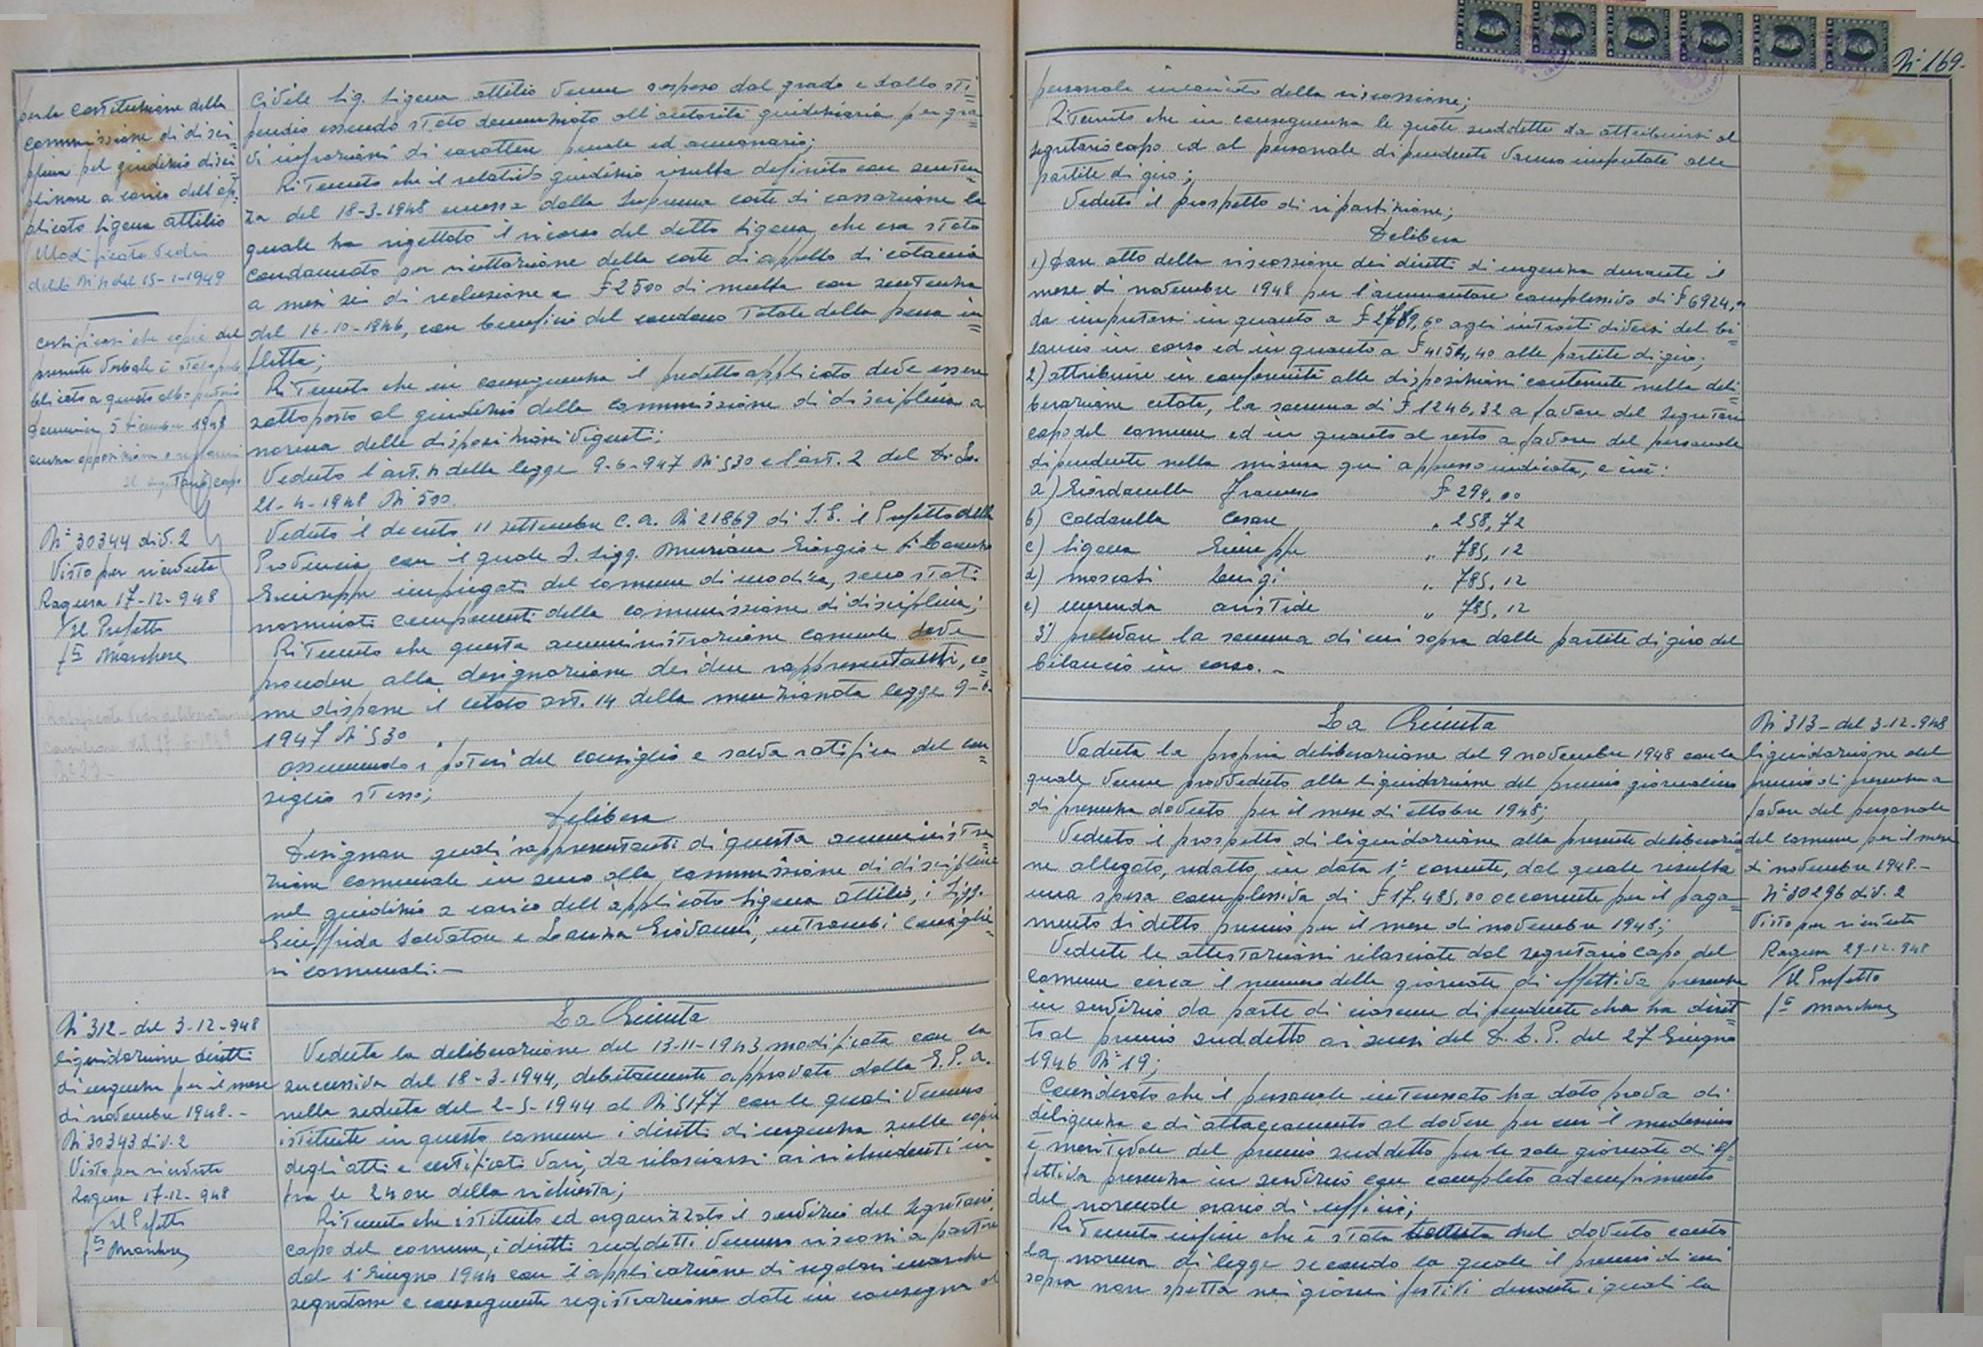 per la costituzione della
commissione di disci=
plina pel giudizio disci=
plinare a carico dell'ap=
plicato Ligena Attilio
Modificata Vedi
delib. N. 4 del 15-1-1949
Civile Sig. Ligena Attilio venne sospeso dal grado e dallo sti=
pendio essendo stato denunziato all'autorità giudiziaria per gra=
vi infrazioni di carattere penale ed annonario;
Ritenuto che il relativo giudizio risulta definito con senten=
za del 18-3-1948 emessa dalla Suprema corte di cassazione la
quale ha rigettato il ricorso del detto Ligena, che era stato
condannato per ricettazione dalla corte di appello di Catania
a mesi sei di reclusione e £ 2500 di multa con sentenza
del 16-10-1946, con benefici del condono totale della pena in=
flitta;
Ritenuto che in conseguenza il predetto applicato deve essere
sottoposto al giudizio della commissione di disciplina a
norma delle disposizioni vigenti;
Veduto l'art. 14 della legge 9-6-947 N° 530 e l'art. 2 del D. L.
21-4-1948 N° 500.
Veduto il decreto 11 settembre c. a. N° 21869 di S. E. il Prefetto della
Provincia con il quale i Sigg. Muriana Giorgio e
Giuseppe impiegati del comune di Modica, sono stati
nominati componenti della commissione di disciplina;
Ritenuto che questa amministrazione comunale deve
procedere alla designazione dei due rappresentanti, co=
me dispone il citato art. 14 della menzionata legge 9-6-
1947 N° 530
Assumendo i poteri del consiglio e salva ratifica del con=
siglio stesso;
Delibera
Designare quali rappresentanti di questa amministra=
zione comunale in seno alla commissione di disciplina
nel giudizio a carico dell'applicato Ligena Attilio, i Sigg.
Giuffrida Salvatore e Leanza Giovanni, entrambi consiglie=
ri comunali. —
certificasi che copia del
presente verbale è stata pub
blicata a questo albo pretorio
Domenica 5 dicembre 1948
senza opposizioni e reclami
Il segretario capo
N° 30344 div. 2
Visto per ricevuta
Ragusa 17-12-948
p/ Il Prefetto
f.to Marchese
Ratificata Vedi deliberazione
N° 312 – del 3-12-948
liquidazione diritti
di urgenza per il mese
di novembre 1948. –
N° 30343 div. 2
Visto per ricevuta
Ragusa 17-12-948
p/ Il Prefetto
f.to Marchese
La Giunta
Veduta la deliberazione del 13-11-1943 modificata con la
successiva del 18-3-1944, debitamente approvata dalla G. P. A.
nella seduta del 2-5-1944 al N° 5177 con le quali vennero
istituite in questo comune i diritti di urgenza sulle copie
degli atti e certificati vari, da rilasciarsi ai richiedenti in=
fra le 24 ore della richiesta;
Ritenuto che istituito ed organizzato il servizio del segretario
capo del comune, i diritti suddetti vennero riscossi a partire
dal 1° Giugno 1944 con l'applicazione di regolari marche
segnatasse e conseguente registrazione date in consegna al
N° 169.
personale incaricato della riscossione;
Ritenuto che in conseguenza le quote suddette da attribuirsi al
segretario capo ed al personale dipendente vanno imputate alle
partite di giro;
Veduto il prospetto di ripartizione;
Delibera
1) Dare atto della riscossione dei diritti di urgenza durante il
mese di novembre 1948 per l'ammontare complessivo di £ 6924,
da imputarsi in quanto a £ 2769,60 agli introiti diversi del bi=
lancio in corso ed in quanto a £ 4154,40 alle partite di giro;
2) attribuire in conformità alle disposizioni contenute nella deli=
berazione citata, la somma di £ 1246,32 a favore del segretario
capo del comune ed in quanto al resto a favore del personale
dipendente nella misura qui appresso indicata, e cioè:
a) Giordanella Francesco £ 294,00
b) Caldarella Cesare " 258,72
c) Ligena Giuseppe " 785,12
d) Moscati Luigi " 785,12
e) Merenda Aristide " 785,12
3) prelevare la somma di cui sopra dalle partite di giro del
bilancio in corso. –
La Giunta
Veduta la propria deliberazione del 9 novembre 1948 con la
quale venne provveduto alla liquidazione del premio giornaliero
di presenza dovuto per il mese di ottobre 1948;
Veduto il prospetto di liquidazione alla presente deliberazio=
ne allegato, redatto in data 1° corrente, dal quale risulta
una spesa complessiva di £ 17.485,00 occorrente per il paga=
mento di detto premio per il mese di novembre 1948;
Vedute le attestazioni rilasciate dal segretario capo del
comune circa il numero delle giornate di effettiva presenza
in servizio da parte di ciascun dipendente che ha dirit=
to al premio suddetto ai sensi del D. L. P. del 27 Giugno
1946 N° 19;
Considerato che il personale interessato ha dato prova di
diligenza e di attaccamento al dovere per cui il medesimo
è meritevole del premio suddetto per le sole giornate di ef=
fettiva presenza in servizio con completo adempimento
del normale orario di ufficio;
Ritenuto infine che è stata tenuta nel dovuto conto
la norma di legge secondo la quale il premio di cui
sopra non spetta nei giorni festivi durante i quali la
N° 313 – del 3-12-948
liquidazione del
premio di presenza a
favore del personale
del comune per il mese
di novembre 1948. –
N° 30296 div. 2
Visto per ricevuta
Ragusa 29-12-948
p/ Il Prefetto
f.to Marchese